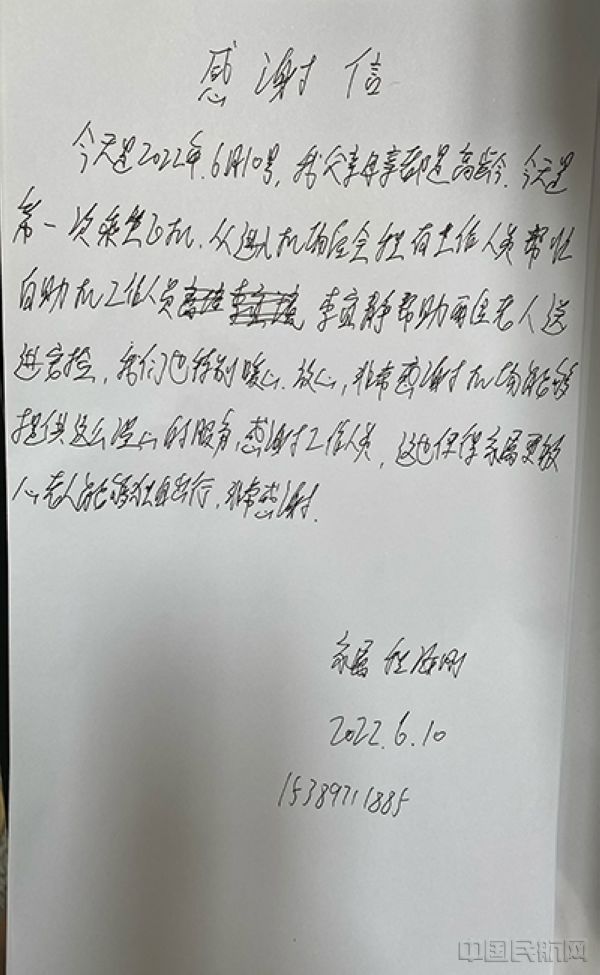 感谢信
今天是2022年.6月10号,我父亲母亲都是高龄.今天是
第一次乘坐飞机.从进入机场全程有工作人员帮忙
自助机工作人员 李宜静帮助两位老人送
进安检,我们也特别暖心.放心,非常感谢机场能够
提供这么温心的服务,感谢工作人员,这也使得家属更放
心老人能够独自出行,非常感谢.
家属 程海刚
2022.6.10
15389711885
中国民航网